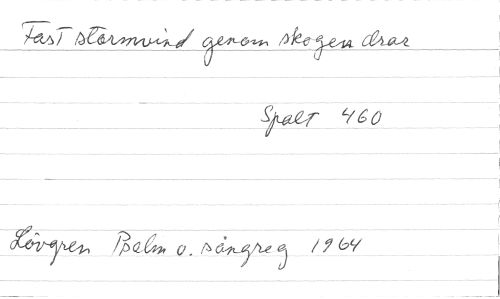 Fast stormvind genom skogen drar
Spalt 460
Lövgren Psalm o. sångreg 1964